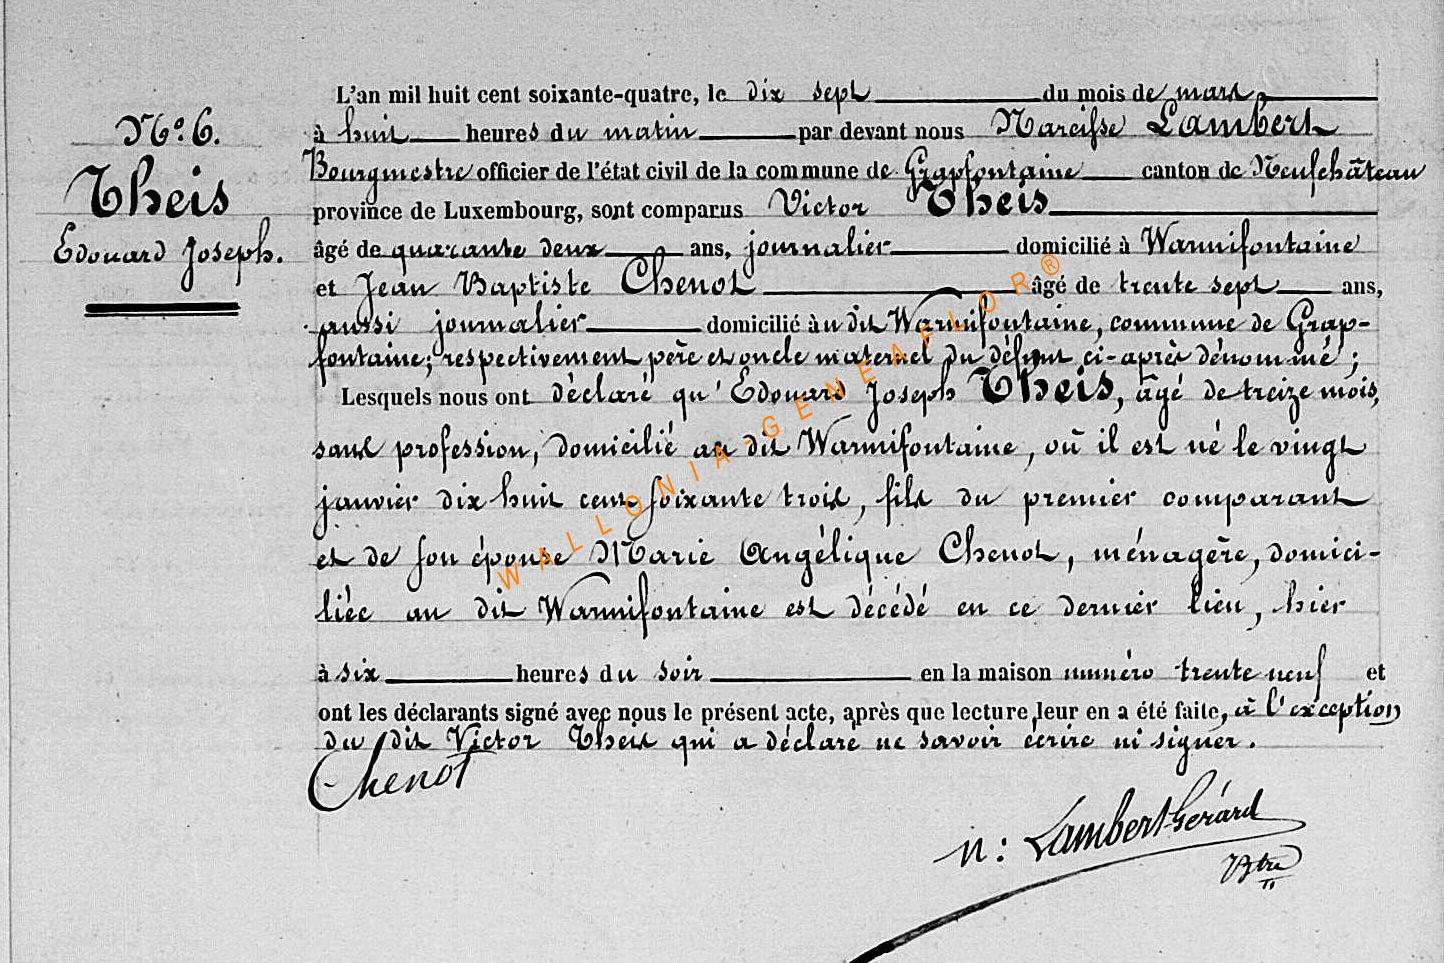 N.° 6.
Theis
Edouard Joseph.
L'an mil huit cent soixante-quatre, le dix sept du mois de mars,
à huit heures du matin par devant nous Narcisse Lambert
Bourgmestre officier de l'état civil de la commune de Grapfontaine canton de Neufchâteau
province de Luxembourg, sont comparus Victor Theis
âgé de quarante deux ans, journalier domicilié à Warmifontaine
et Jean Baptiste Chenot âgé de trente sept ans,
aussi journalier domicilié àu dit Warmifontaine, commune de Grap-
fontaine; respectivement père et oncle maternel du défunt ci-après dénommé;
Lesquels nous ont déclaré qu'Edouard Joseph Theis, âgé de treize mois,
sans profession, domicilié au dit Warmifontaine, où il est né le vingt
janvier dix huit cent soixante trois, fils du premier comparant
et de son épouse Marie Angélique Chenot, ménagère, domici-
liée au dit Warmifontaine est décédé en ce dernier lieu, hier
à six heures du soir en la maison numéro trente neuf et
ont les déclarants signé avec nous le présent acte, après que lecture leur en a été faite, à l'exception
du dit Victor Theis qui a déclaré ne savoir écrire ni signer.
Chenot
N: Lambert Gérard
Btre
WALLONIA-GENEAFLOR®